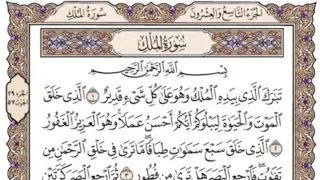 الجزء التاسع والعشرون
سورة الملك
سُورَةُ المُلْكِ
بِسْمِ اللَّهِ الرَّحْمَٰنِ الرَّحِيمِ
تَبَٰرَكَ الَّذِي بِيَدِهِ الْمُلْكُ وَهُوَ عَلَىٰ كُلِّ شَيْءٍ قَدِيرٌ ١ الَّذِي خَلَقَ
الْمَوْتَ وَالْحَيَوٰةَ لِيَبْلُوَكُمْ أَيُّكُمْ أَحْسَنُ عَمَلًا وَهُوَ الْعَزِيزُ الْغَفُورُ
٢ الَّذِي خَلَقَ سَبْعَ سَمَٰوَٰتٍ طِبَاقًا مَّا تَرَىٰ فِي خَلْقِ الرَّحْمَٰنِ مِن
تَفَٰوُتٍ فَارْجِعِ الْبَصَرَ هَلْ تَرَىٰ مِن فُطُورٍ ٣ ثُمَّ ارْجِعِ الْبَصَرَ كَرَّتَيْنِ